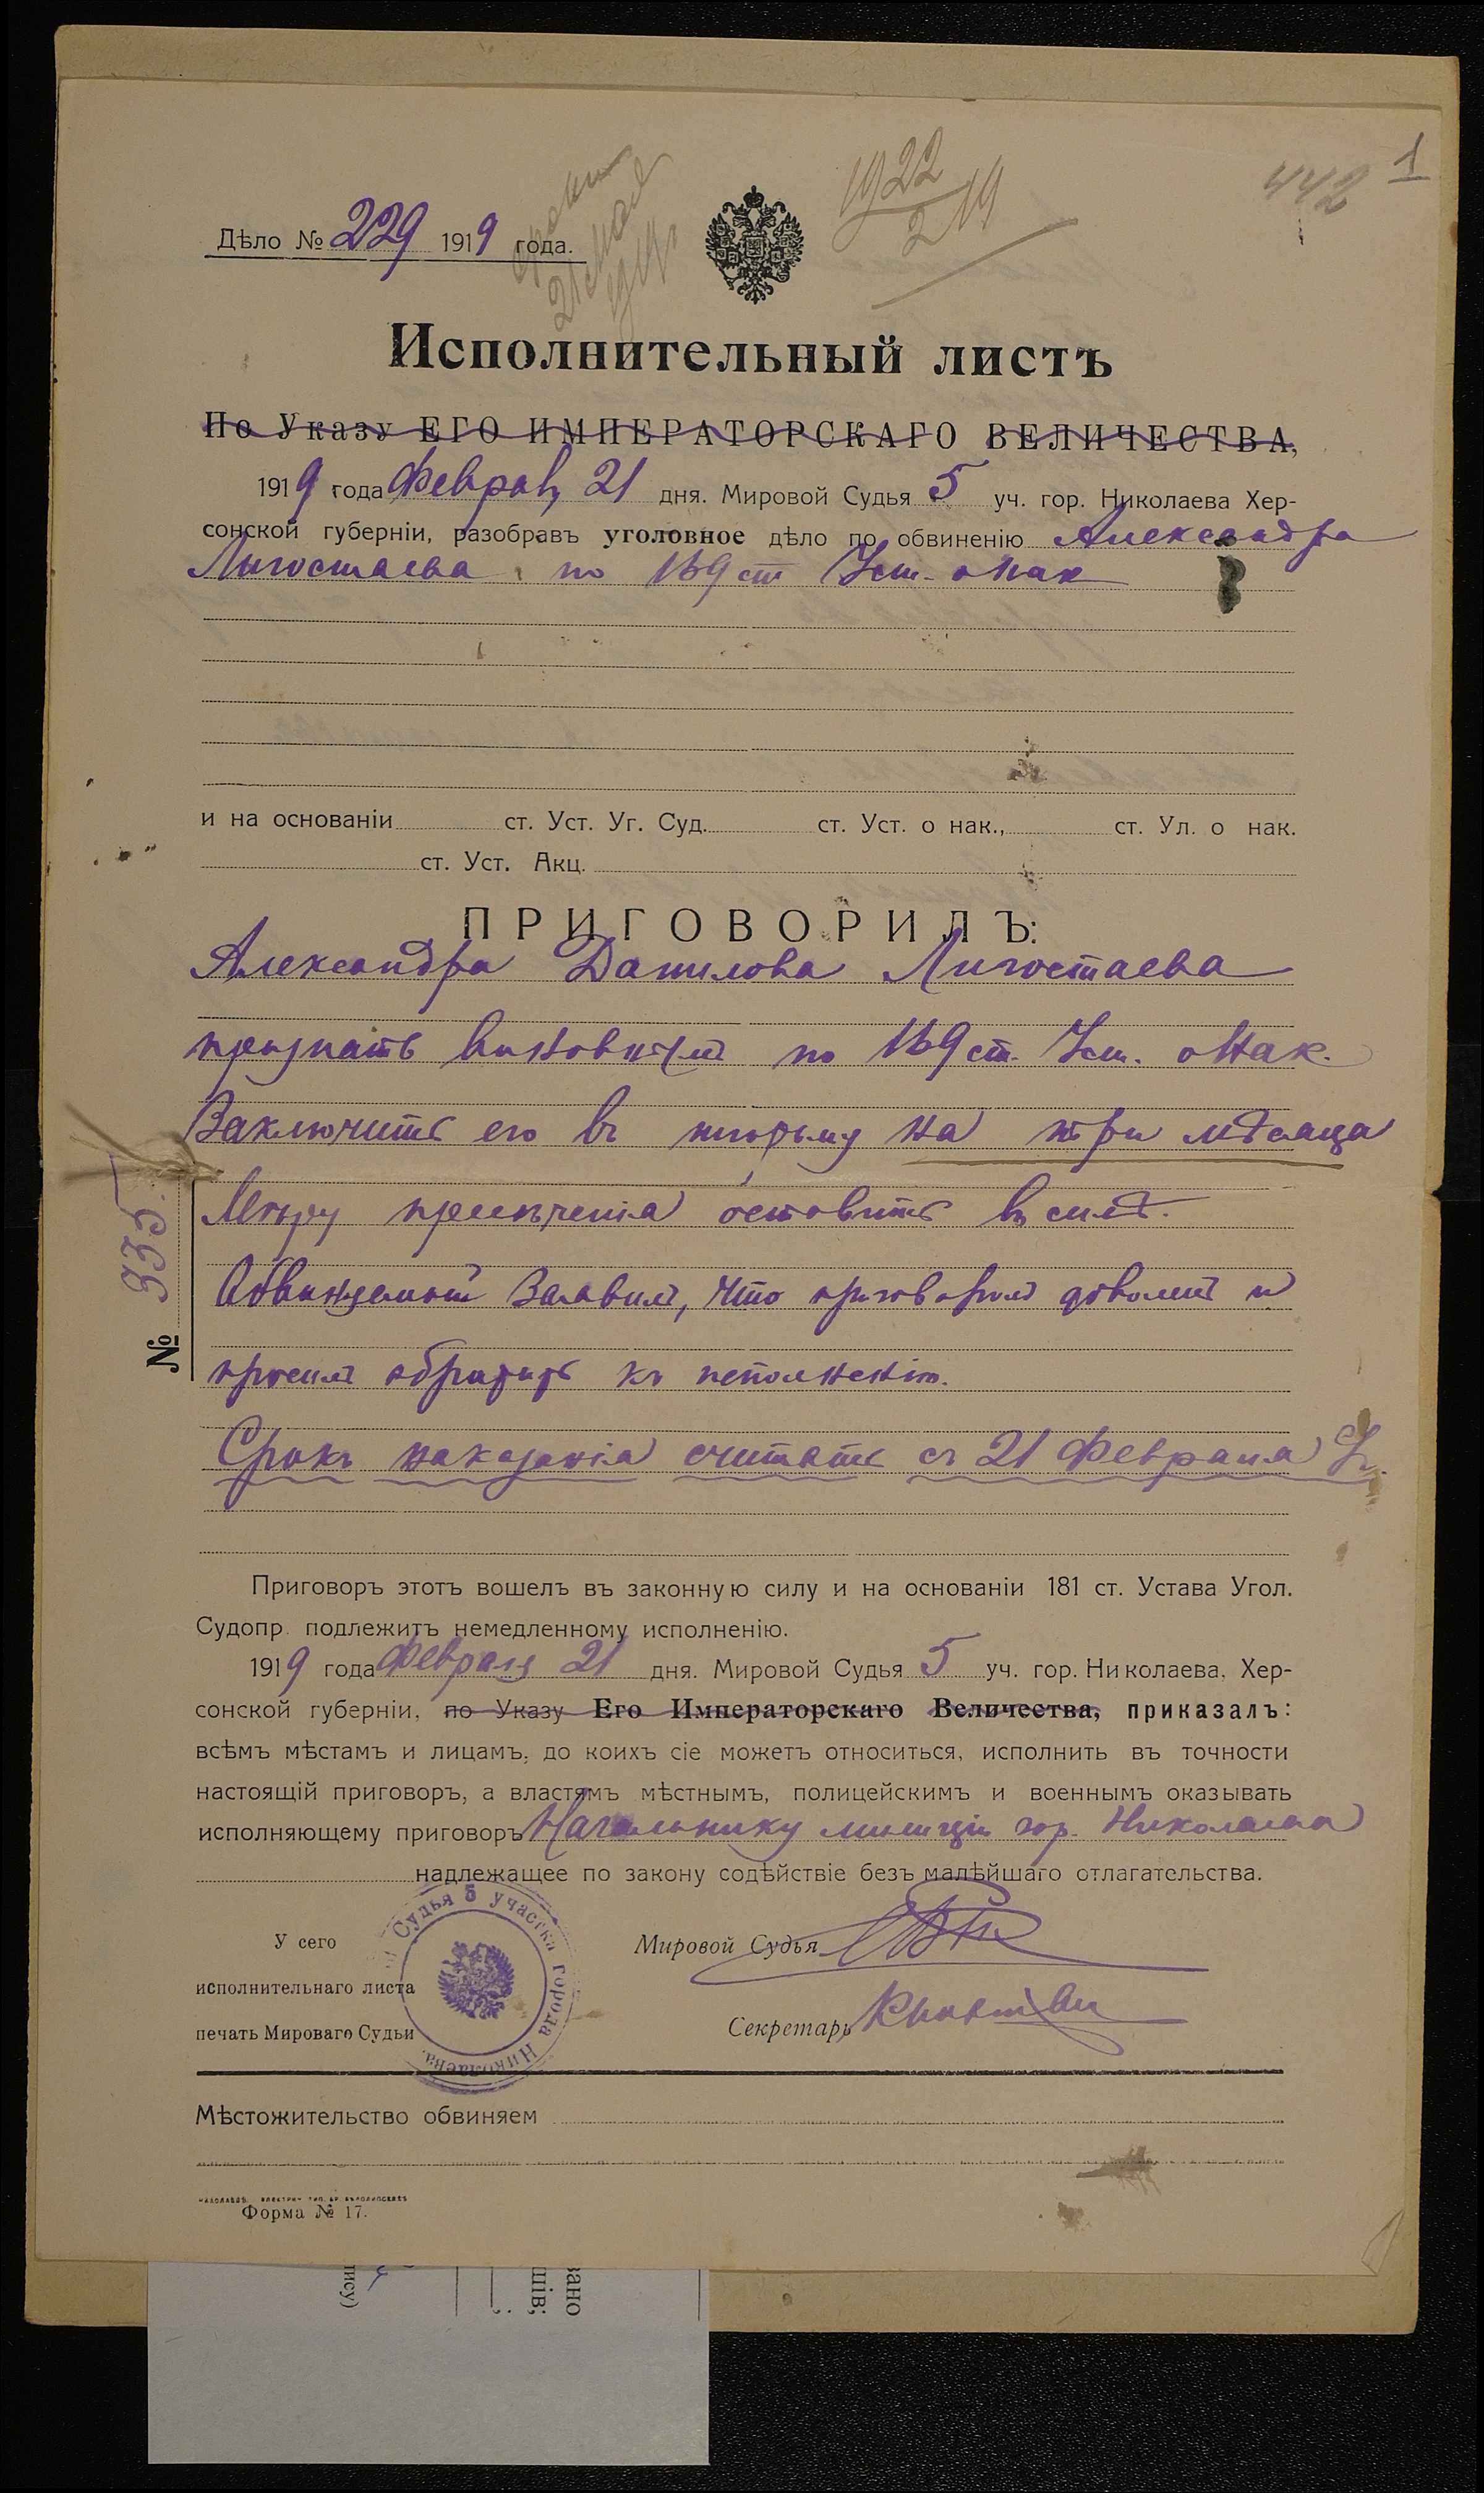 442 1
1922
2 19
Дѣло № 229 1919 года.
21 мая
Исполнительный листъ
По Указу ЕГО ИМПЕРАТОРСКАГО ВЕЛИЧЕСТВА,
1919 года Февраля 21 дня. Мировой Судья 5 уч. гор. Николаева Хер-
сонской губерніи, разобравъ уголовное дѣло по обвиненію Александра
Лигостаева по 169 ст Уст. о нак
и на основаніи ст. Уст. Уг. Суд. ст. Уст. о нак., ст. Ул. о нак.
ст. Уст. Акц.
ПРИГОВОРИЛЪ:
Александра Данилова Лигостаева
признать виновным по 169 ст. Уст. о Нак.
Заключить его въ тюрьму на три мѣсяца
Мѣру пресѣченія оставить въ силѣ.
Обвиняемый Заявил, что приговором доволен и
просил обратить къ исполненію.
Срокъ наказанія считать съ 21 Февраля
№ 335
Приговоръ этотъ вошелъ въ законную силу и на основаніи 181 ст. Устава Угол.
Судопр. подлежитъ немедленному исполненію.
1919 года Февраля 21 дня. Мировой Судья 5 уч. гор. Николаева, Хер-
сонской губерніи, по Указу Его Императорскаго Величества, приказалъ:
всѣмъ мѣстамъ и лицамъ, до коихъ сіе можетъ относиться, исполнить въ точности
настоящій приговоръ, а властямъ мѣстнымъ, полицейскимъ и военнымъ оказывать
исполняющему приговоръ Начальнику милиціи гор. Николаева
надлежащее по закону содѣйствіе безъ малѣйшаго отлагательства.
У сего
исполнительнаго листа
печать Мироваго Судьи
Судья 5 участка города Николаева.
Мировой Судья
Секретарь
Мѣстожительство обвиняем
Форма № 17.
пису)
шів;
вано